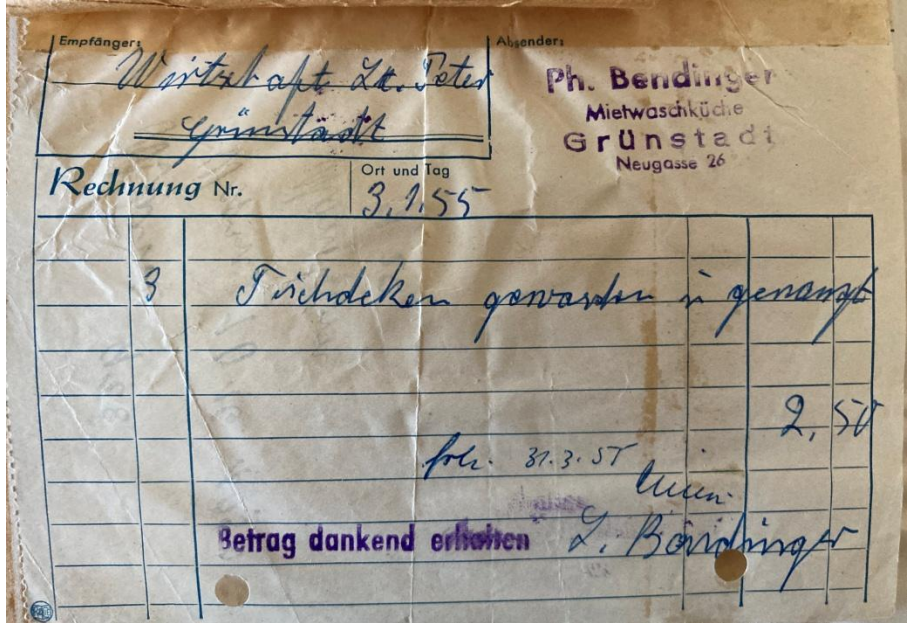 Empfänger:
Absender:
Wirtschaft Lk. Peter
Grünstadt
Ph. Bendinger
Mietwaschküche
Grünstadt
Neugasse 26
Rechnung Nr.
Ort und Tag
3.1.55
3 Tischdeken gewaschen u gemangt
2,50
31.3.55
Betrag dankend erhalten L. Bendinger